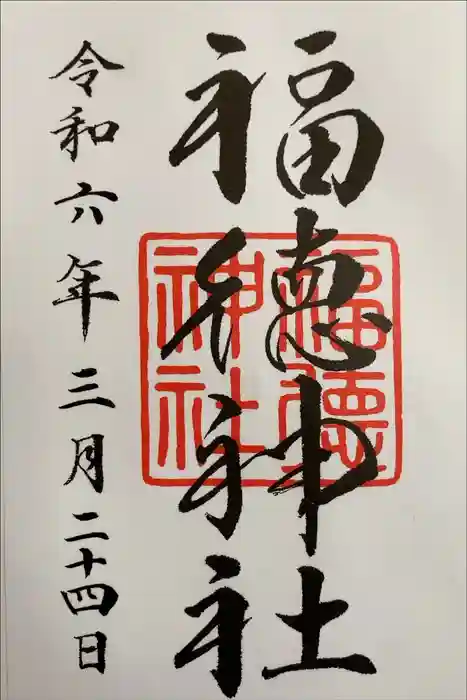 福德神社
福德神社
令和六年三月二十四日